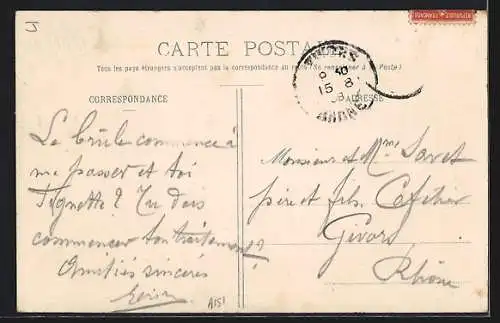 J
RÉPUBLIQUE FRANÇAISE
CARTE POSTALE
Tous les pays étrangers n'acceptent pas la correspondance au recto (Se renseigner à la Poste)
CORRESPONDANCE
ADRESSE
15 8
RHÔNE
Le brûle commence à
me passer et toi
Tu dois
commencer ton traitement?
Amitiés sincères
A151
Monsieur et Mme
père et fils
Givors
Rhône